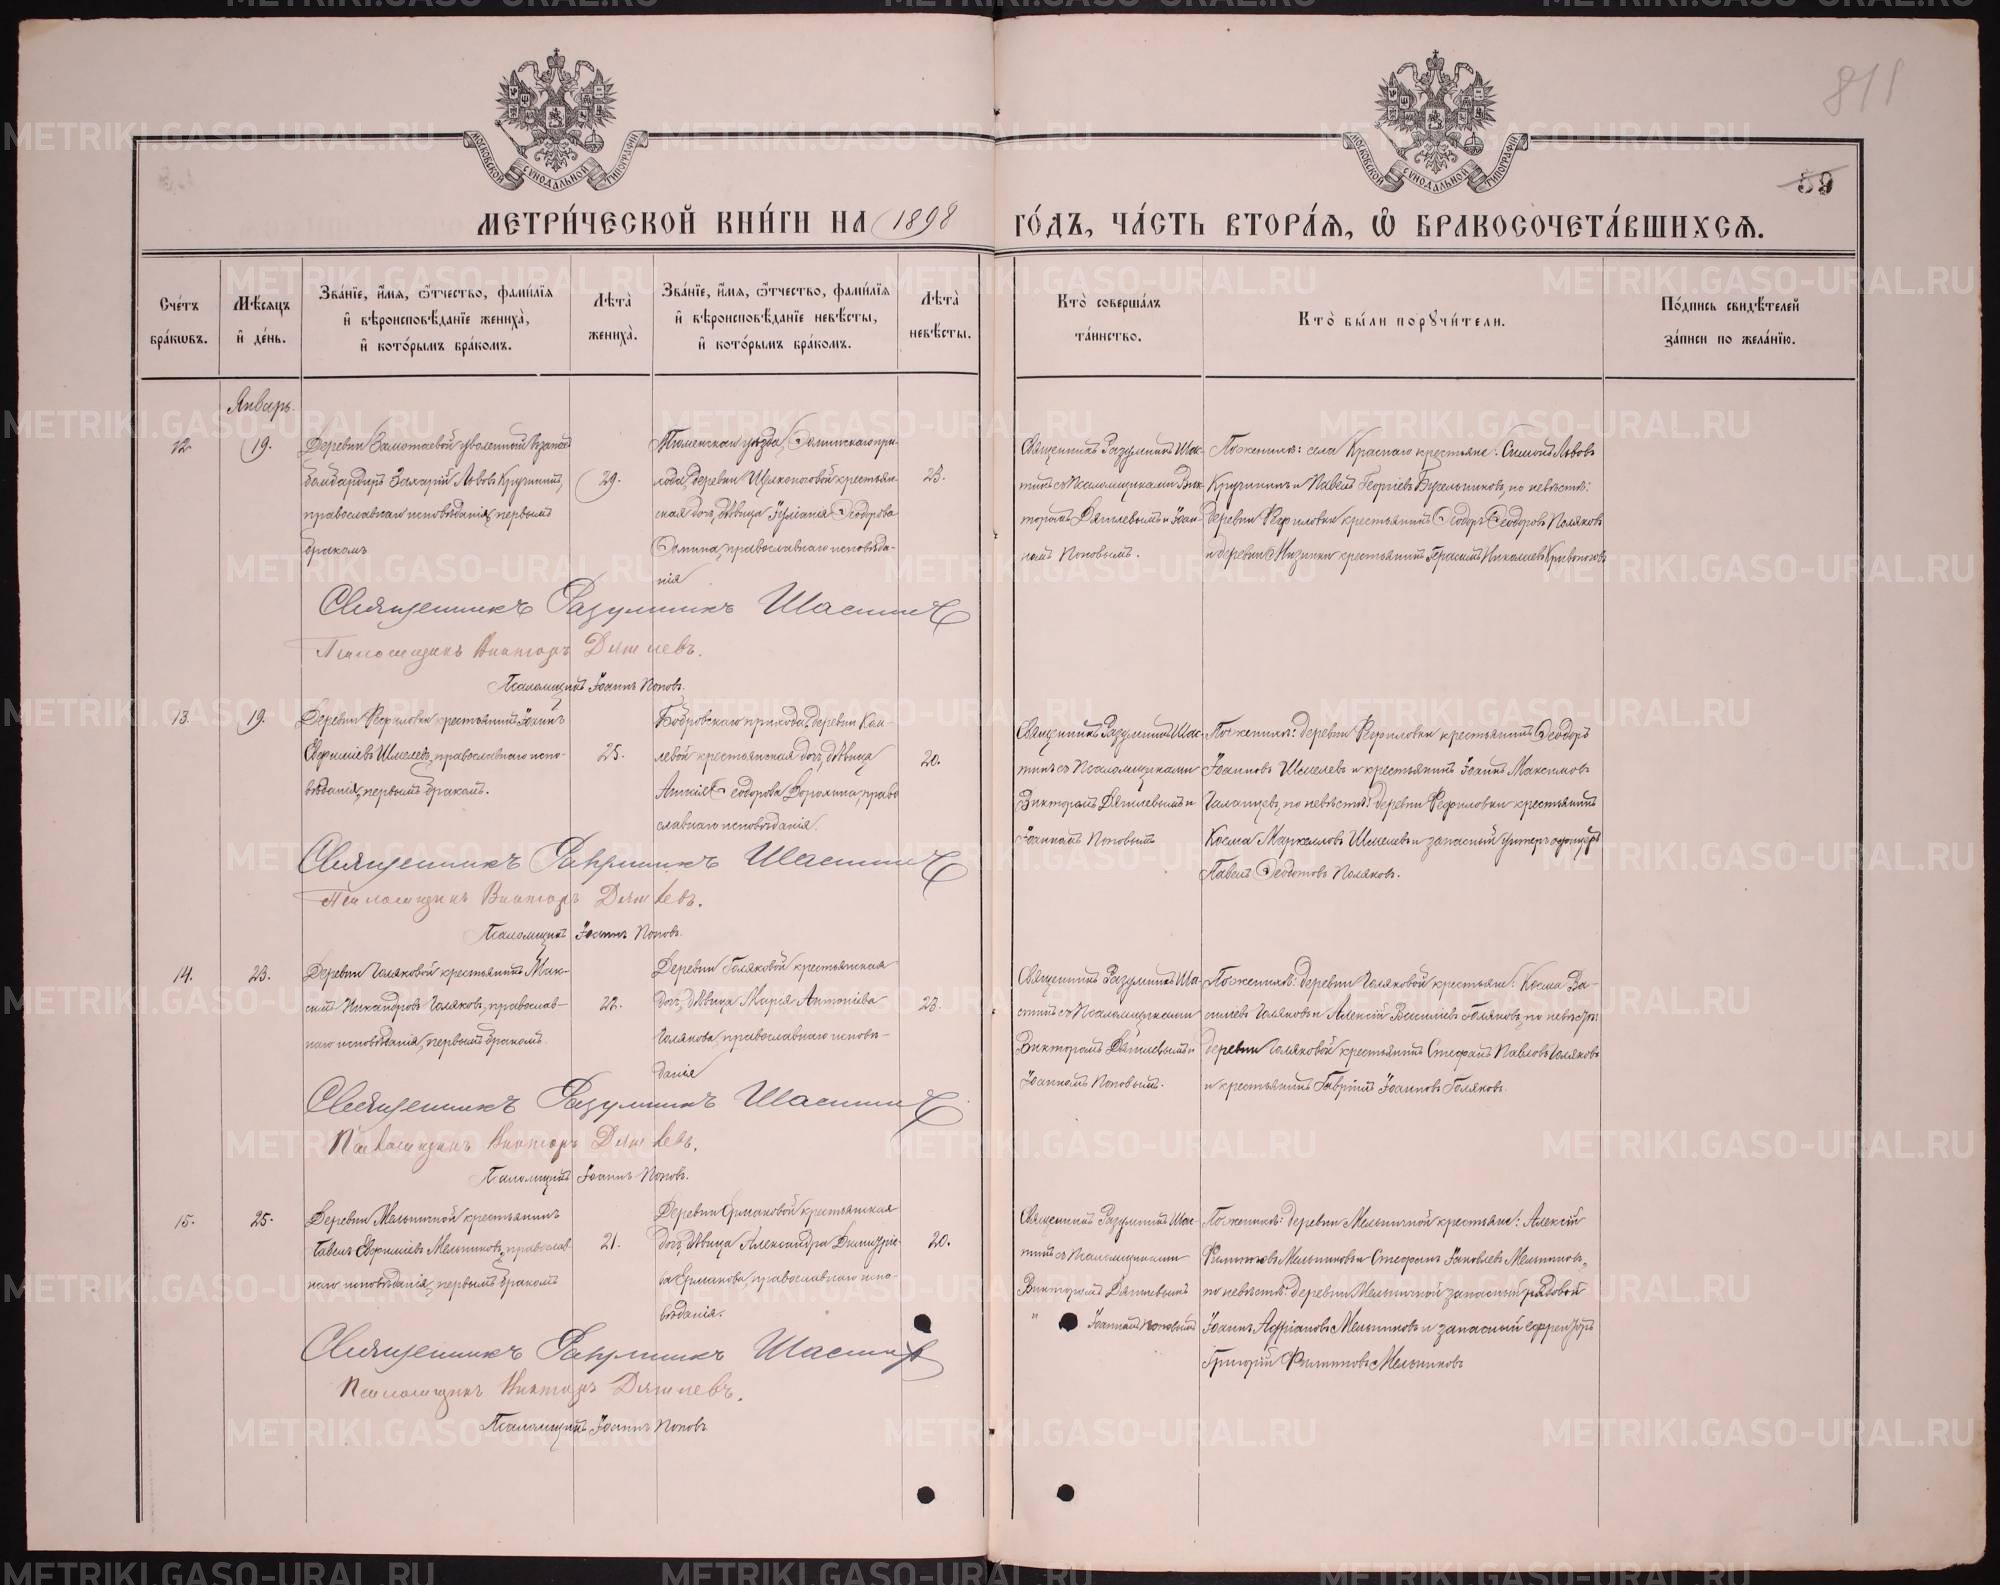 811
59
МОСКОВСКОЙ СѴНОДАЛЬНОЙ ТИПОГРАФІИ
МОСКОВСКОЙ СѴНОДАЛЬНОЙ ТИПОГРАФІИ
МЕТРИ́ЧЕСКОЙ КНИ́ГИ НА 1898 ГО́ДЪ, ЧА́СТЬ ВТОРА́Ѧ, Ѽ БРАКОСОЧЕТА́ВШИХСѦ.
Сче́тъ бра́кѡвъ.
Мѣ́сѧцъ и҆ де́нь.
Зва́нїе, и҆́мѧ, ѻ҆́тчество, фамї́лїѧ
и҆ вѣроисповѣ́данїе жениха̀,
и҆ кото́рымъ бра́комъ.
Лѣта̀ жениха̀.
Зва́нїе, и҆́мѧ, ѻ҆́тчество, фамї́лїѧ
и҆ вѣроисповѣ́данїе невѣ́сты,
и҆ кото́рымъ бра́комъ.
Лѣта̀ невѣ́сты.
Кто̀ соверша́лъ та́инство.
Кто̀ бы́ли порꙋчи́тели.
По́дпись свидѣ́телей за́писи по жела́нїю.
Январь.
12.
19.
Деревни Замотаевой уволенный въ запасъ
бомбардиръ Захарій Львовъ Кручининъ,
православнаго исповѣданія, первымъ
бракомъ
29.
Тюменскаго уѣзда,
хода, деревни крестьян-
ская дочь, дѣвица Іуліанія Ѳеодорова
православнаго исповѣда-
нія
23.
Священникъ Разумникъ Шас-
тинъ съ псаломщиками Вик-
торомъ Дягилевымъ и Іоан-
номъ Поповымъ.
По женихѣ: села Краснаго крестьяне: Симонъ Львовъ
Кручининъ и Павелъ Георгіевъ Бусыльниковъ, по невѣстѣ:
деревни Ѳефиловки крестьянинъ Ѳеодоръ Ѳеодоровъ Поляковъ
и деревни Мизинки крестьянинъ Герасимъ Николаевъ Кривоноговъ
Священникъ Разумникъ Шастинъ
Псаломщикъ Викторъ Дягилевъ.
Псаломщикъ Іоаннъ Поповъ.
13.
19.
Деревни Ѳефиловки крестьянинъ Іоаннъ
Евфиміевъ Шмелевъ, православнаго испо-
вѣданія, первымъ бракомъ.
25.
Бобровскаго прихода, деревни Кам-
левой крестьянская дочь, дѣвица
Ѳеодорова Ворохина, право
славнаго исповѣданія.
20.
Священникъ Разумникъ Шас-
тинъ съ псаломщиками
Викторомъ Дягилевымъ и
Іоанномъ Поповымъ
По женихѣ: деревни Ѳефиловки крестьянинъ Ѳеодоръ
Іоанновъ Шмелевъ и крестьянинъ Іоаннъ Максимовъ
Галанцевъ, по невѣстѣ: деревни Ѳефиловки крестьянинъ
Косма Маркелловъ Шмелевъ и запасный унтеръ офицеръ
Павелъ Ѳеодотовъ Поляковъ.
Священникъ Разумникъ Шастинъ
Псаломщикъ Викторъ Дягилевъ.
Псаломщикъ Іоаннъ Поповъ.
14.
23.
Деревни Голяковой крестьянинъ Мак-
симъ Никандровъ Голяковъ, православ-
наго исповѣданія, первымъ бракомъ.
22.
Деревни Голяковой крестьянская
дочь, дѣвица Марія Антоніева
Голякова, православнаго исповѣ-
данія
23.
Священникъ Разумникъ Ша-
стинъ съ псаломщиками
Викторомъ Дягилевымъ и
Іоанномъ Поповымъ.
По женихѣ: деревни Голяковой крестьяне: Косма Ва-
силіевъ Голяковъ и Алексій Василіевъ Голяковъ, по невѣстѣ:
деревни Голяковой крестьянинъ Стефанъ Павловъ Голяковъ
и крестьянинъ Гавріилъ Іоанновъ Голяковъ.
Священникъ Разумникъ Шастинъ
Псаломщикъ Викторъ Дягилевъ.
Псаломщикъ Іоаннъ Поповъ.
15.
25.
Деревни Мельничной крестьянинъ
Павелъ Евфиміевъ Мельниковъ, православ
наго исповѣданія, первымъ бракомъ
21.
Деревни Ермаковой крестьянская
дочь, дѣвица Александра Димитріе-
ва Ермакова, православнаго испо-
вѣданія.
20.
Священникъ Разумникъ Шас-
тинъ съ псаломщиками
Викторомъ Дягилевымъ
" Іоанномъ Поповымъ
По женихѣ: деревни Мельничной крестьяне: Алексій
Филипповъ Мельниковъ и Стефанъ Іаковлевъ Мельниковъ,
по невѣстѣ: деревни Мельничной запасный рядовой
Іоаннъ Адріановъ Мельниковъ и запасный ефрейторъ
Григорій Филипповъ Мельниковъ
Священникъ Разумникъ Шастинъ
Псаломщикъ Викторъ Дягилевъ.
Псаломщикъ Іоаннъ Поповъ.
METRIKI.GASO-URAL.RU